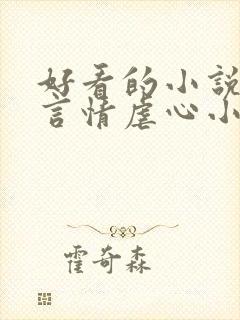 好看的小說
言情虐心小
霍奇森